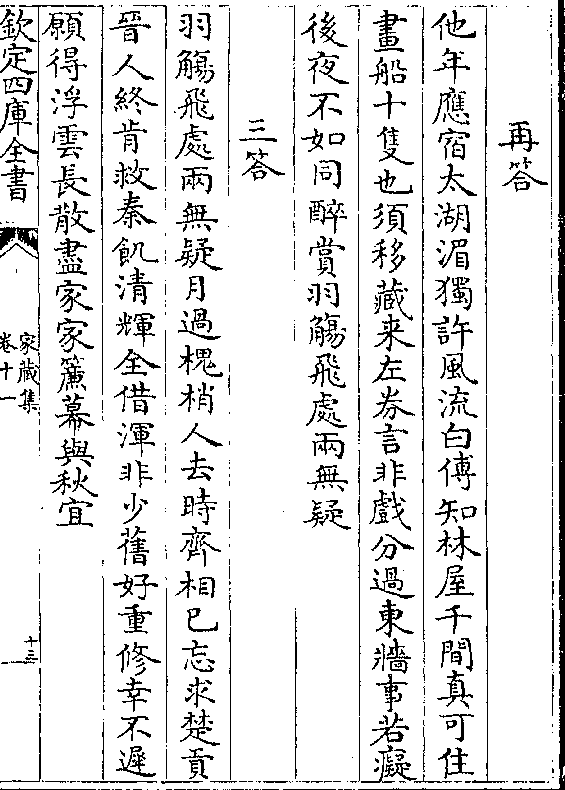 再答
他年應宿太湖湄獨許風流白傅知林屋千間真可住
畫船十隻也須移藏来左券言非戲分過東牆事若癡
後夜不如同醉賞羽觴飛處兩無疑
三答
羽觴飛處兩無疑月過槐梢人去時齊相已忘求楚貢
晉人終肯救秦飢清輝全借渾非少舊好重修幸不遲
願得浮雲長散盡家家簾幕與秋宜
欽定四庫全書
家藏集
卷十一
十三